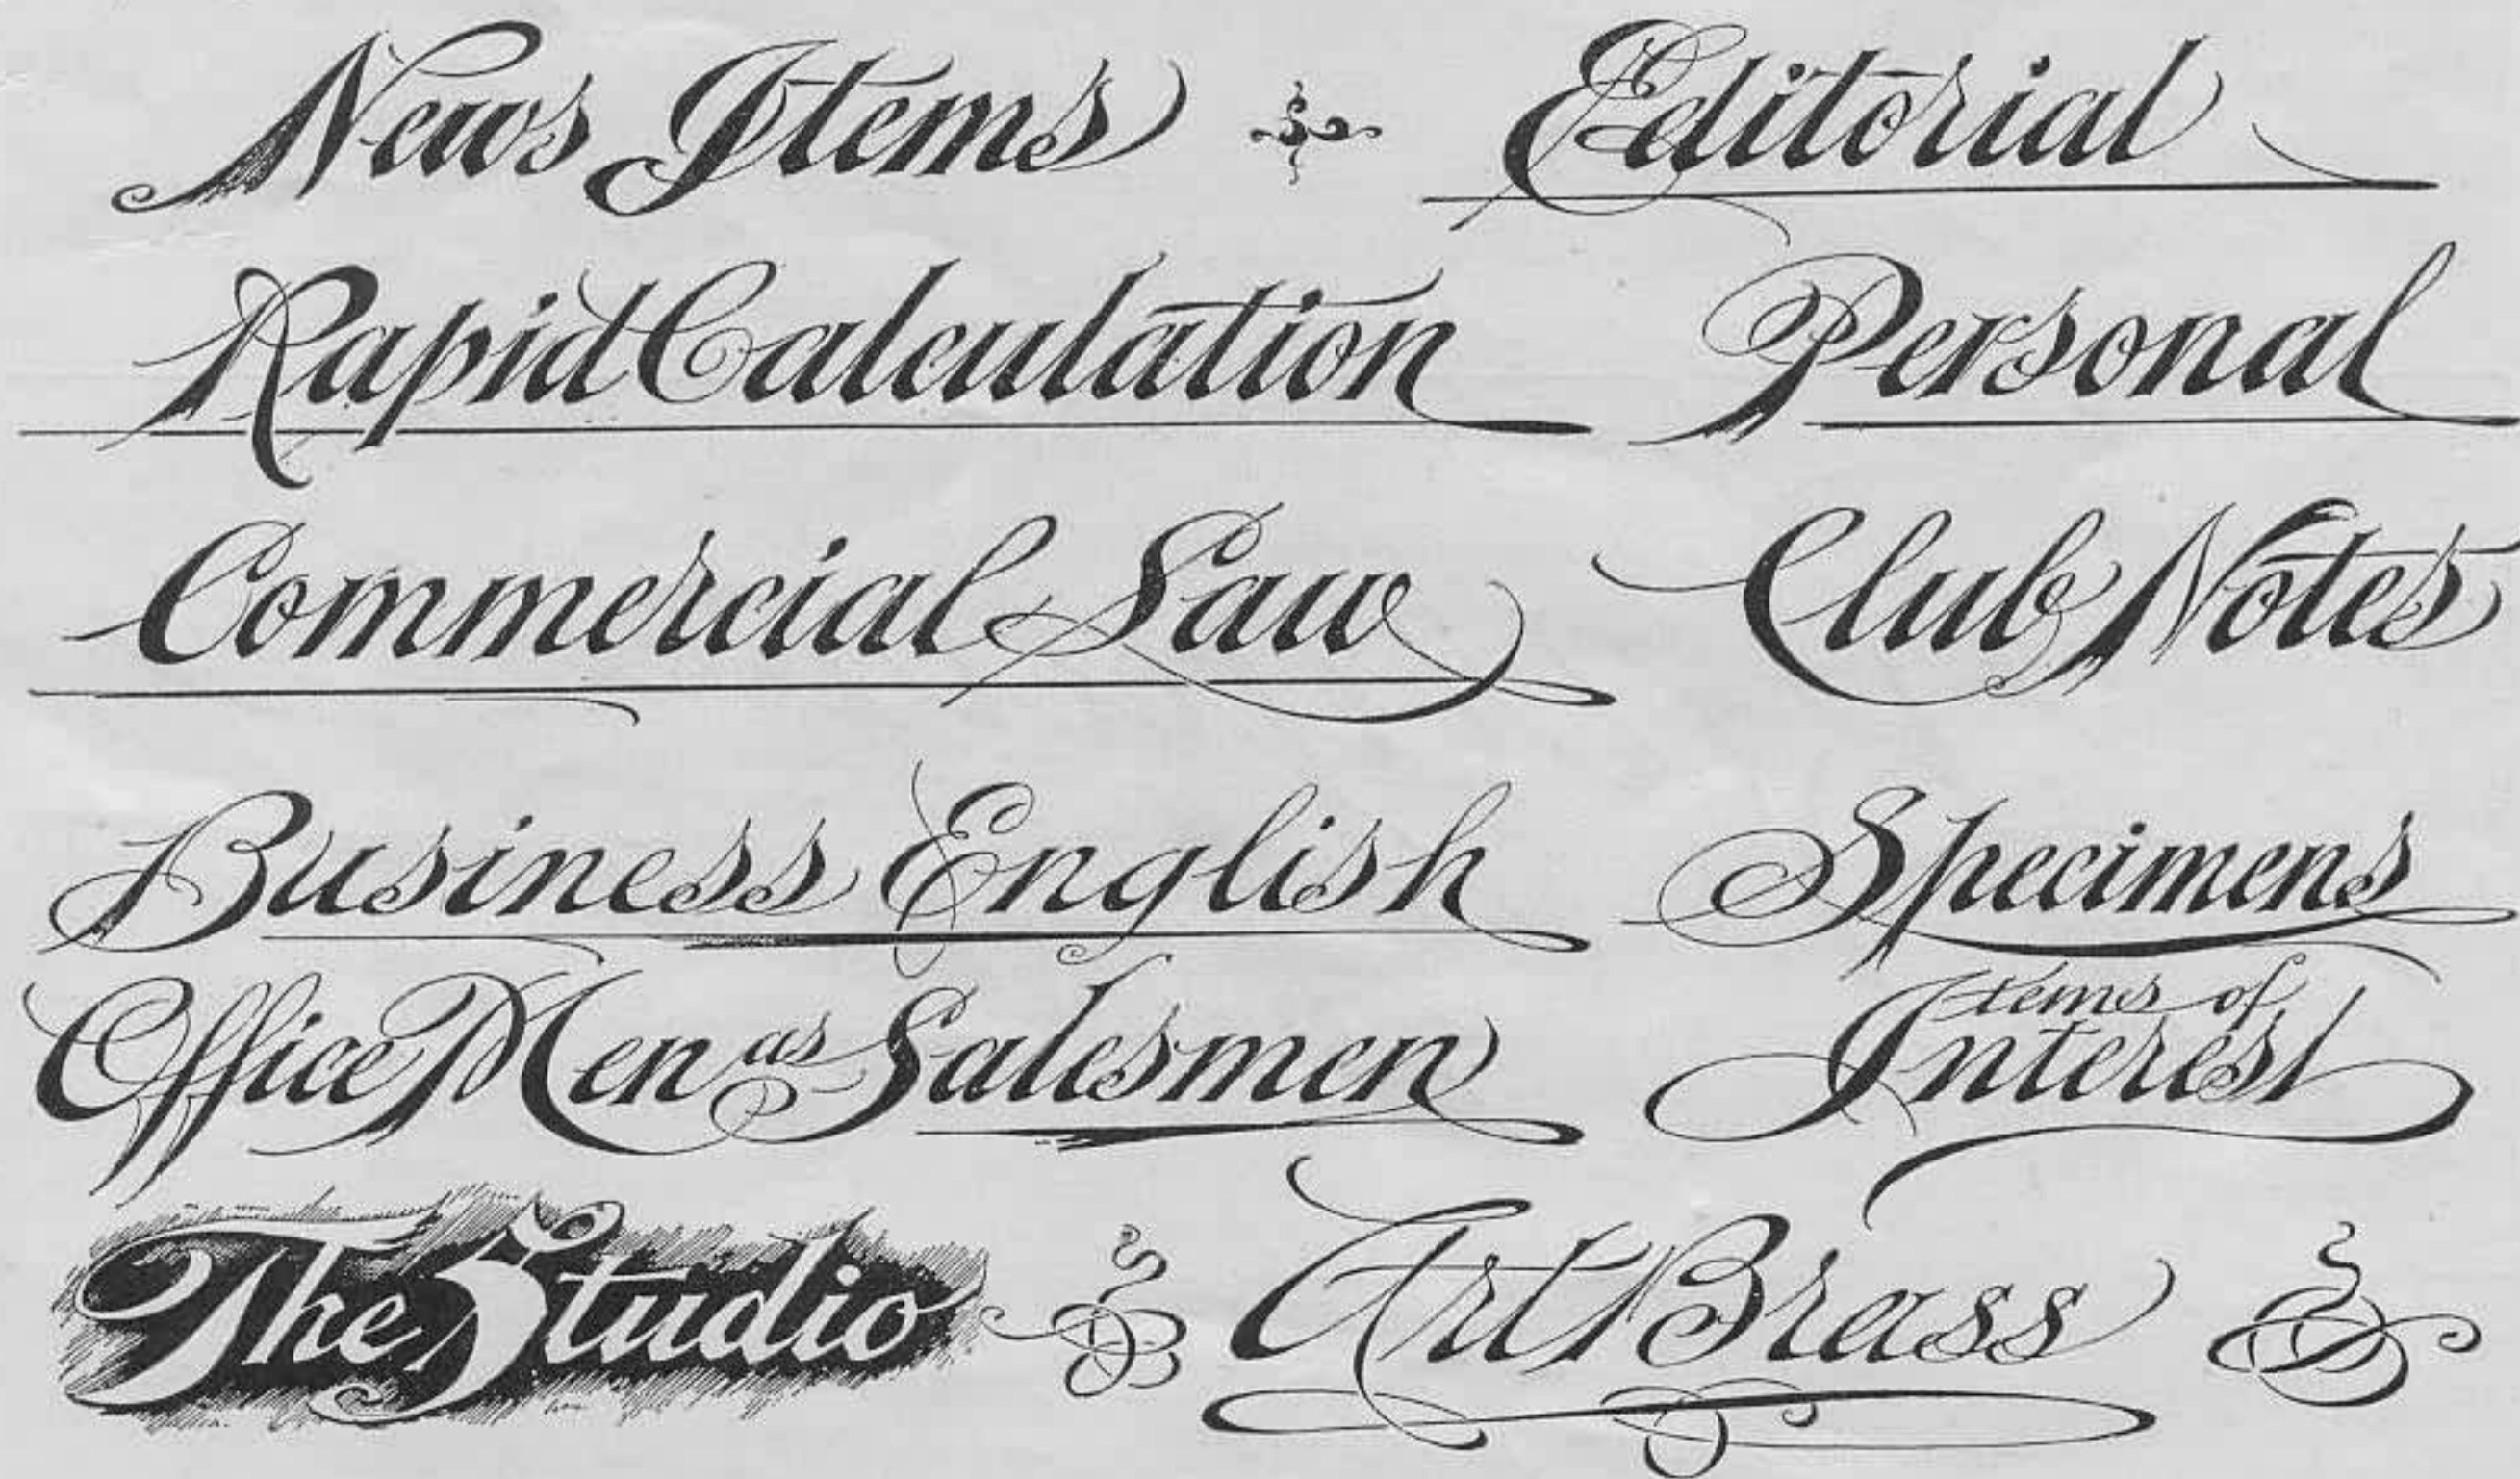 News Items Editorial
Rapid Calculation Personal
Commercial Law Club Notes
Business English Specimens
Office Men as Salesmen Items of Interest
The Studio Art Brass